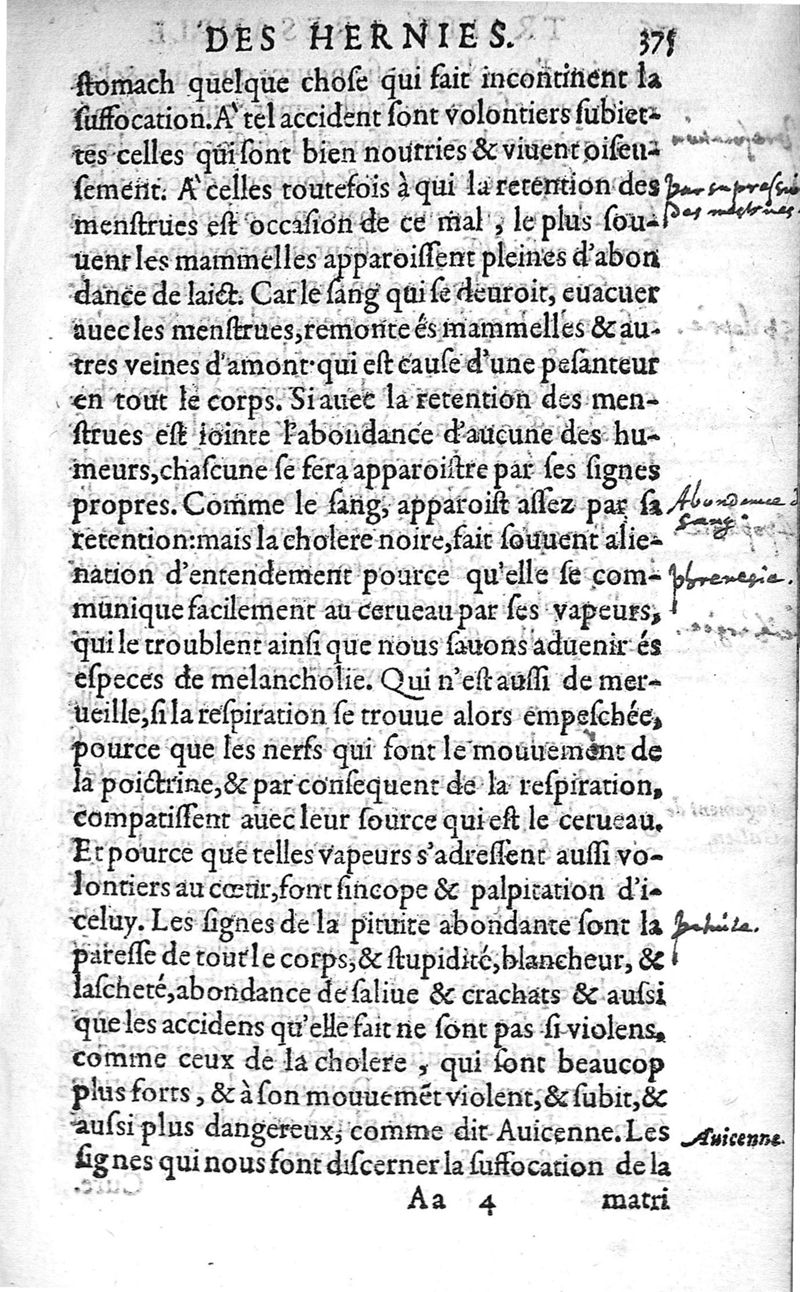 DES HERNIES. 375
ſtomach quelque choſe qui fait incontinent la
ſuffocation. A tel accident ſont volontiers ſubiet-
tes celles qui ſont bien nourries & viuent oiſeu-
ſement. A celles toutefois à qui la retention des
menſtrues eſt occaſion de ce mal, le plus ſou-
uent les mammelles apparoiſſent pleines d'abon
dance de laict. Car le ſang qui ſe deuroit, euacuer
auec les menſtrues, remonte és mammelles & au-
tres veines d'amont qui eſt cauſe d'une peſanteur
en tout le corps. Si auec la retention des men-
ſtrues eſt iointe l'abondance d'aucune des hu-
meurs, chaſcune ſe fera apparoiſtre par ſes ſignes
propres. Comme le ſang, apparoiſt aſſez par ſa
Abondence
ſang.
retention: mais la cholere noire, fait ſouuent alie-
nation d'entendement pource qu'elle ſe com-
phrenesie.
munique facilement au cerueau par ſes vapeurs,
qui le troublent ainſi que nous ſauons aduenir és
eſpeces de melancholie. Qui n'eſt auſſi de mer-
ueille, ſi la reſpiration ſe trouue alors empeſchée,
pource que les nerfs qui font le mouuement de
la poictrine, & par conſequent de la reſpiration,
compatiſſent auec leur ſource qui eſt le cerueau.
Et pource que telles vapeurs s'adreſſent auſſi vo-
lontiers au cœur, font ſincope & palpitation d'i-
celuy. Les ſignes de la pituite abondante ſont la
pituite.
pareſſe de tout le corps, & ſtupidité, blancheur, &
laſcheté, abondance de ſaliue & crachats & auſſi
que les accidens qu'elle fait ne ſont pas ſi violens,
comme ceux de la cholere, qui ſont beaucop
plus forts, & à ſon mouuemēt violent, & ſubit, &
auſſi plus dangereux, comme dit Auicenne. Les
Auicenne.
ſignes qui nous font diſcerner la ſuffocation de la
Aa 4 matri